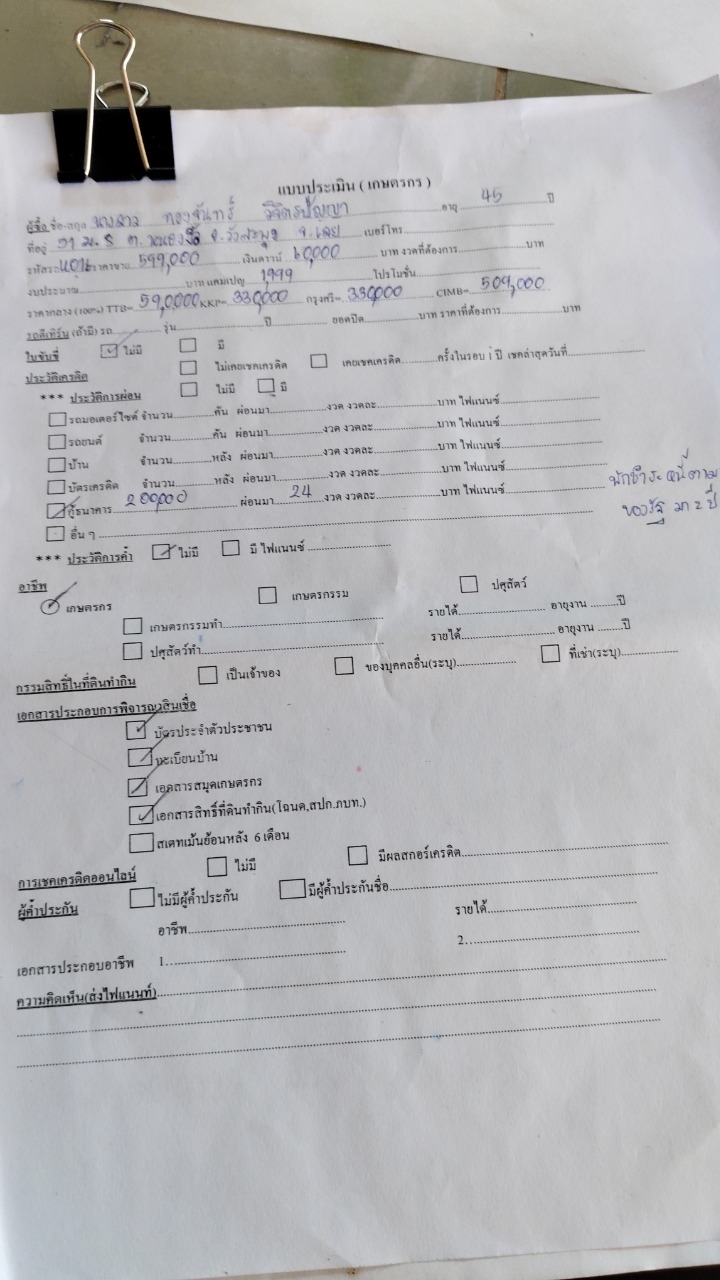 แบบประเมิน ( เกษตรกร )
ผู้ซื้อ ชื่อ-สกุล นางสาว ทองจันทร์ วิจิตรปัญญา อายุ 45 ปี
ที่อยู่ 31 ม.8 ต.หนองงิ้ว อ.วังสะพุง จ.เลย เบอร์โทร
รหัสรถ ราคาขาย 599,000 เงินดาวน์ 60,000 บาท งวดที่ต้องการ บาท
งบประมาณ บาท แคมเปญ 1,999 โปรโมชั่น
ราคากลาง (100%) TTB= 590,000 KKP= 330,000 กรุงศรี= 330,000 CIMB= 509,000
รถตีเทิร์น (ถ้ามี) รถ รุ่น ปี ยอดปิด บาท ราคาที่ต้องการ บาท
ใบขับขี่ ไม่มี มี
ประวัติเครดิต ไม่เคยเชคเครดิต เคยเชคเครดิต ครั้งในรอบ 1 ปี เชคล่าสุดวันที่
*** ประวัติการผ่อน ไม่มี มี
รถมอเตอร์ไซค์ จำนวน คัน ผ่อนมา งวด งวดละ บาท ไฟแนนซ์
รถยนต์ จำนวน คัน ผ่อนมา งวด งวดละ บาท ไฟแนนซ์
บ้าน จำนวน หลัง ผ่อนมา งวด งวดละ บาท ไฟแนนซ์
บัตรเครดิต จำนวน หลัง ผ่อนมา งวด งวดละ บาท ไฟแนนซ์
กู้ธนาคาร 200,000 ผ่อนมา 24 งวด งวดละ บาท ไฟแนนซ์ พักชำระหนี้ตาม
ของรัฐ มา 2 ปี
อื่น ๆ
*** ประวัติการค้ำ ไม่มี มี ไฟแนนซ์
อาชีพ
เกษตรกร เกษตรกรรม ปศุสัตว์
เกษตรกรรมทำ รายได้ อายุงาน ปี
ปศุสัตว์ทำ รายได้ อายุงาน ปี
กรรมสิทธิ์ในที่ดินทำกิน เป็นเจ้าของ ของบุคคลอื่น(ระบุ) ที่เช่า(ระบุ)
เอกสารประกอบการพิจารณาสินเชื่อ
บัตรประจำตัวประชาชน
ทะเบียนบ้าน
เอกสารสมุดเกษตรกร
เอกสารสิทธิ์ที่ดินทำกิน(โฉนด,สปก.ภบท.)
สเตทเม้นย้อนหลัง 6 เดือน
การเชคเครดิตออนไลน์ ไม่มี มีผลสกอร์เครดิต
ผู้ค้ำประกัน ไม่มีผู้ค้ำประกัน มีผู้ค้ำประกันชื่อ
อาชีพ รายได้
เอกสารประกอบอาชีพ 1. 2.
ความคิดเห็น(ส่งไฟแนนท์)